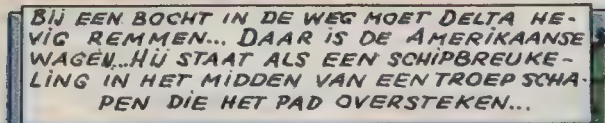 BIJ EEN BOCHT IN DE WEG MOET DELTA HE-
VIG REMMEN... DAAR IS DE AMERIKAANSE
WAGEN...HIJ STAAT ALS EEN SCHIPBREUKE-
LING IN HET MIDDEN VAN EEN TROEP SCHA-
PEN DIE HET PAD OVERSTEKEN...